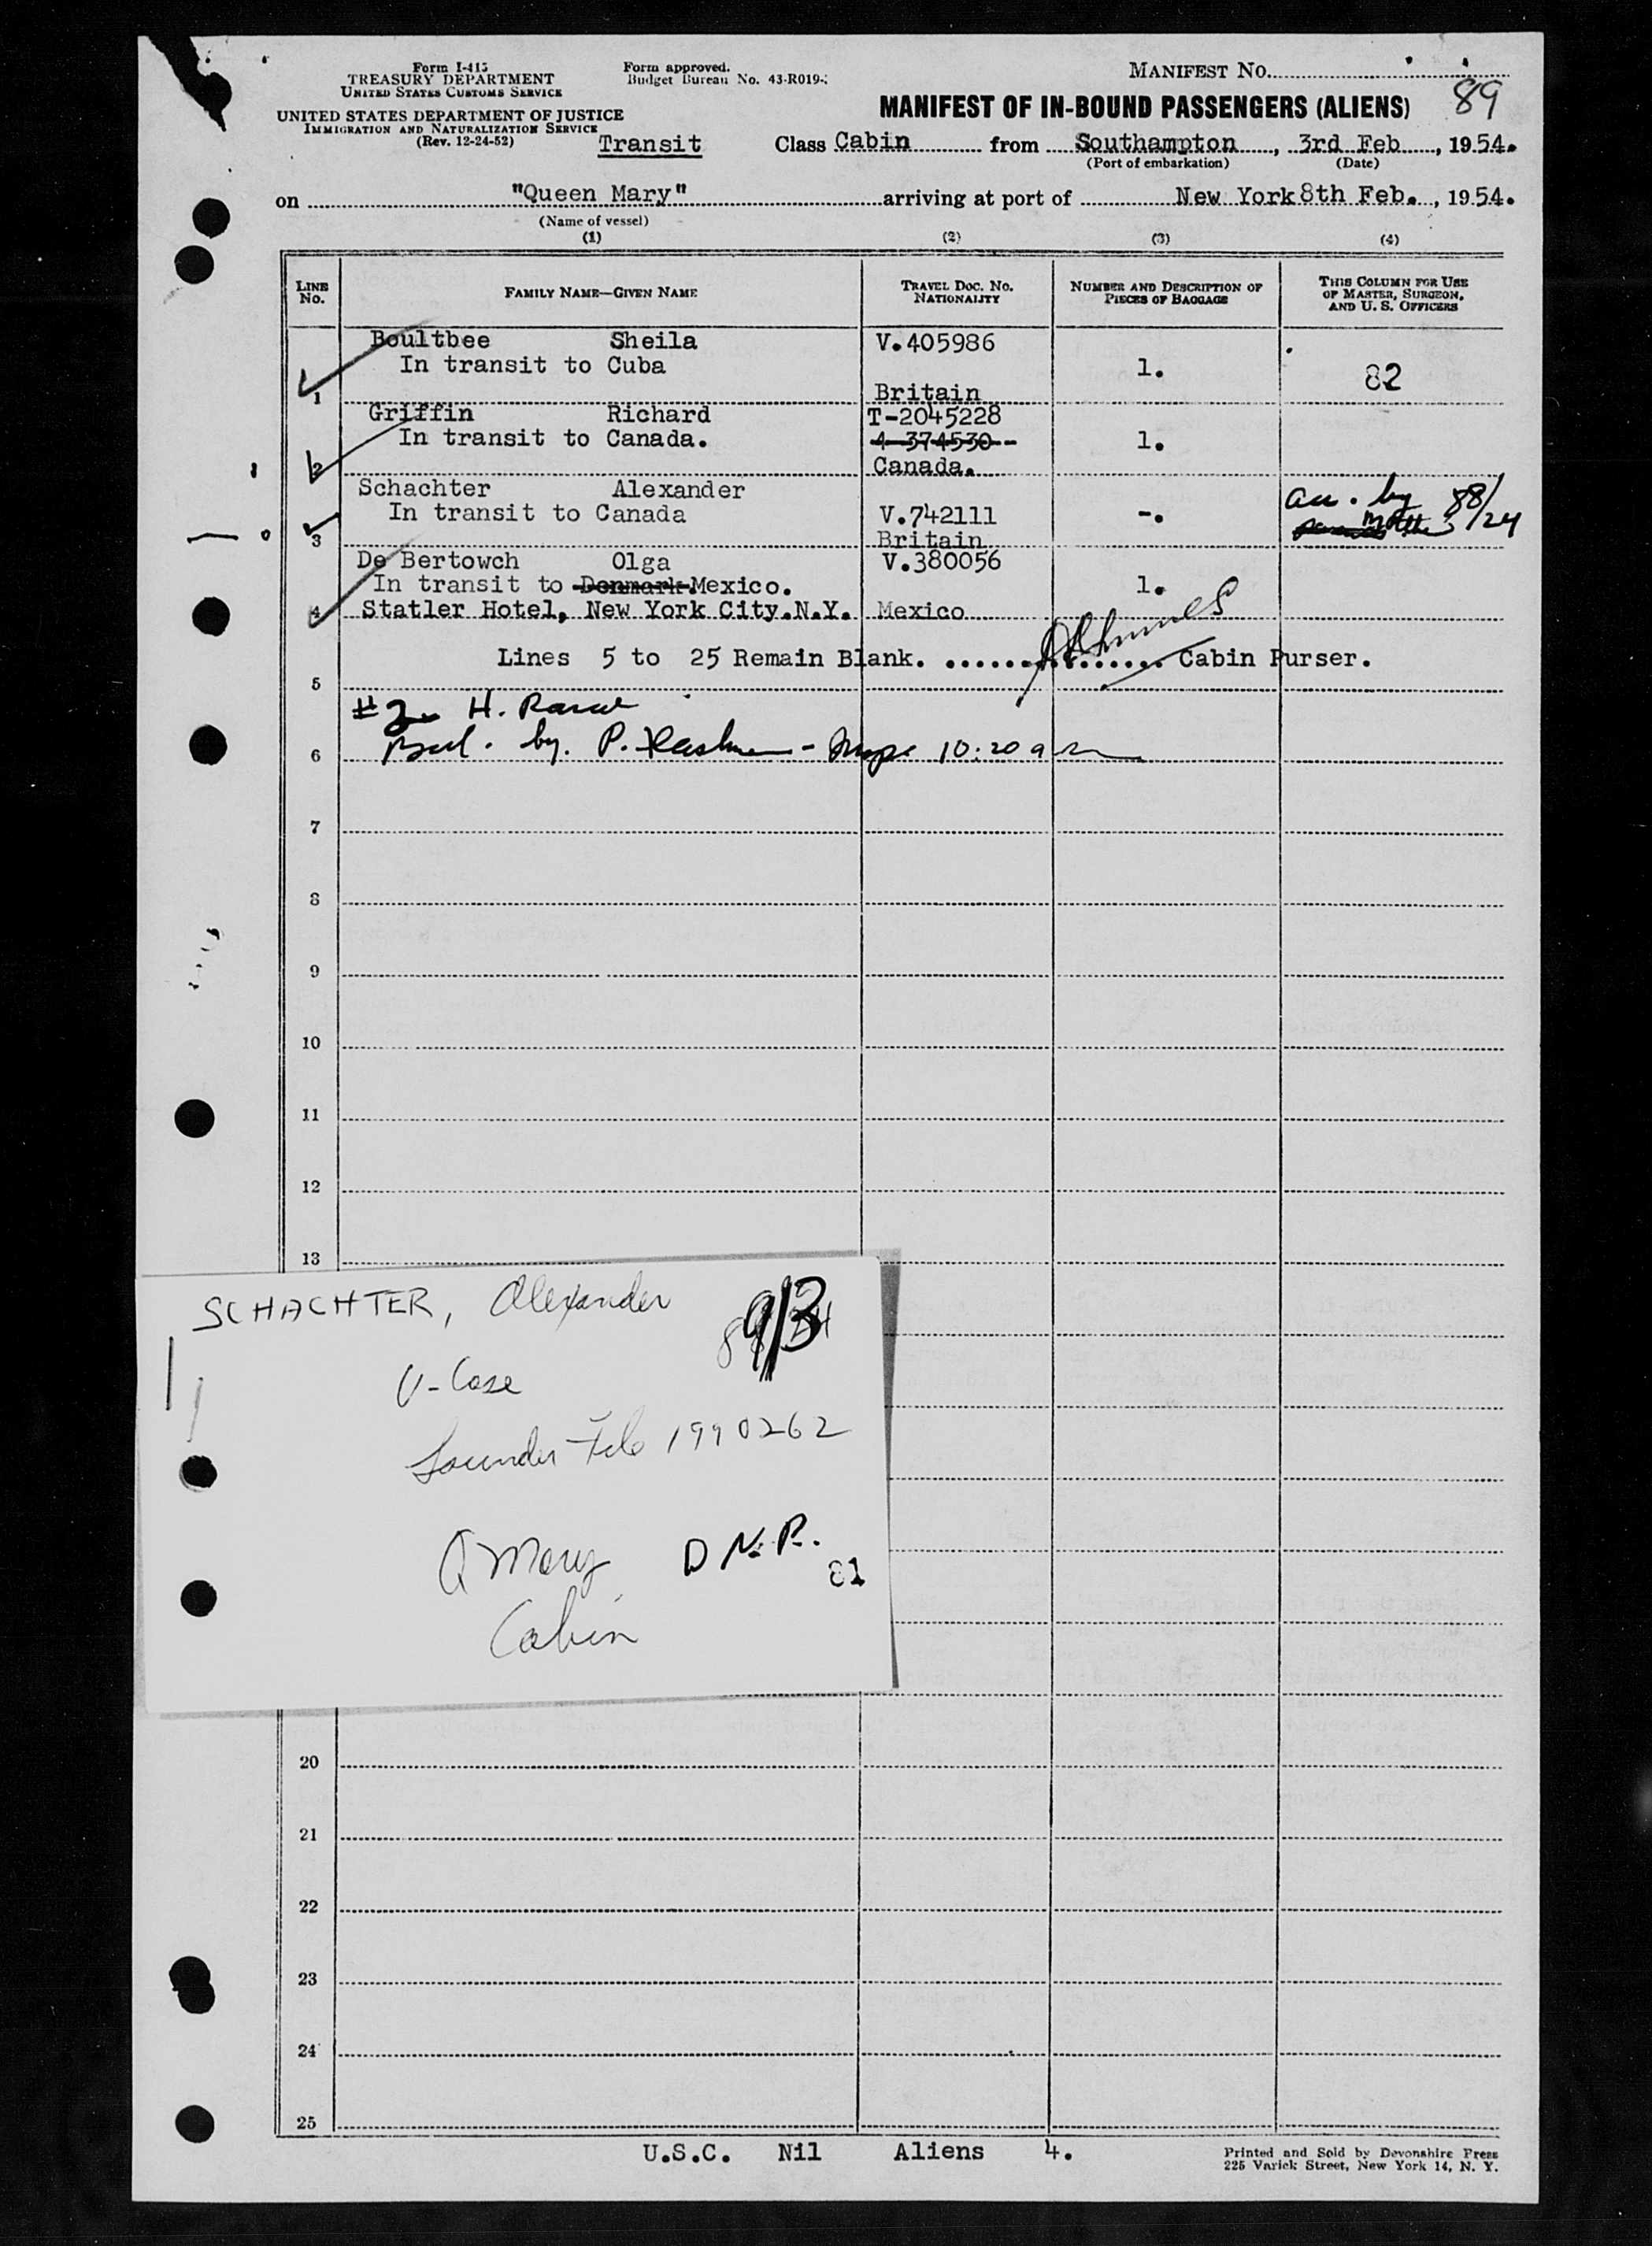 Form I-415
TREASURY DEPARTMENT
UNITED STATES CUSTOMS SERVICE
UNITED STATES DEPARTMENT OF JUSTICE
IMMIGRATION AND NATURALIZATION SERVICE
(Rev. 12-24-52)
Form approved.
Budget Bureau No. 43-R019-
MANIFEST NO.
89
MANIFEST OF IN-BOUND PASSENGERS (ALIENS)
Transit Class Cabin from Southampton, 3rd Feb, 1954.
(Port of embarkation) (Date)
on "Queen Mary" arriving at port of New York 8th Feb., 1954.
(Name of vessel)
(1) (2) (3) (4)
LINE No. FAMILY NAME—GIVEN NAME TRAVEL DOC. NO. NATIONALITY NUMBER AND DESCRIPTION OF PIECES OF BAGGAGE THIS COLUMN FOR USE OF MASTER, SURGEON, AND U. S. OFFICERS
Boultbee Sheila V.405986
In transit to Cuba 1. 82
1 Britain
Griffin Richard T-2045228
In transit to Canada. 4-374530-- 1.
2 Canada.
Schachter Alexander
In transit to Canada V.742111 -. acc. by 88/24
3 Britain
De Bertowch Olga V.380056
In transit to Denmark. Mexico. 1.
4 Statler Hotel, New York City.N.Y. Mexico
Lines 5 to 25 Remain Blank. Cabin Purser.
5
#2 H.
6 by. P. 10:20 am
7
8
9
10
11
12
13
SCHACHTER, Alexander
9/3
V-Case
File 1990262
Q Mary D.N.P.
81
Cabin
20
21
22
23
24
25
U.S.C. Nil Aliens 4.
Printed and Sold by Devonshire Press
225 Varick Street, New York 14, N. Y.